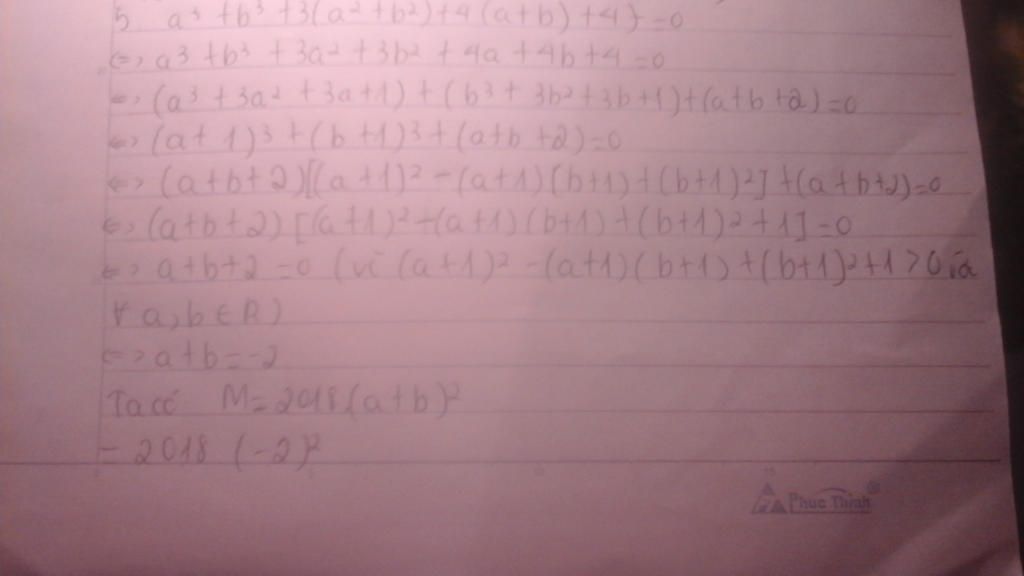 5 a³ + b³ + 3(a² + b²) + 4(a+b) + 4 } = 0
<=> a³ + b³ + 3a² + 3b² + 4a + 4b + 4 = 0
<=> (a³ + 3a² + 3a + 1) + (b³ + 3b² + 3b + 1) + (a + b + 2) = 0
<=> (a + 1)³ + (b + 1)³ + (a + b + 2) = 0
<=> (a + b + 2)[(a + 1)² - (a + 1)(b + 1) + (b + 1)²] + (a + b + 2) = 0
<=> (a + b + 2)[(a + 1)² + (a + 1)(b + 1) + (b + 1)² + 1] = 0
<=> a + b + 2 = 0 (vì (a + 1)² - (a + 1)(b + 1) + (b + 1)² + 1 > 0
∀ a, b ∈ R)
<=> a + b = -2
Ta có M = 2018(a + b)²
= 2018 (-2)²
Phuc Thinh